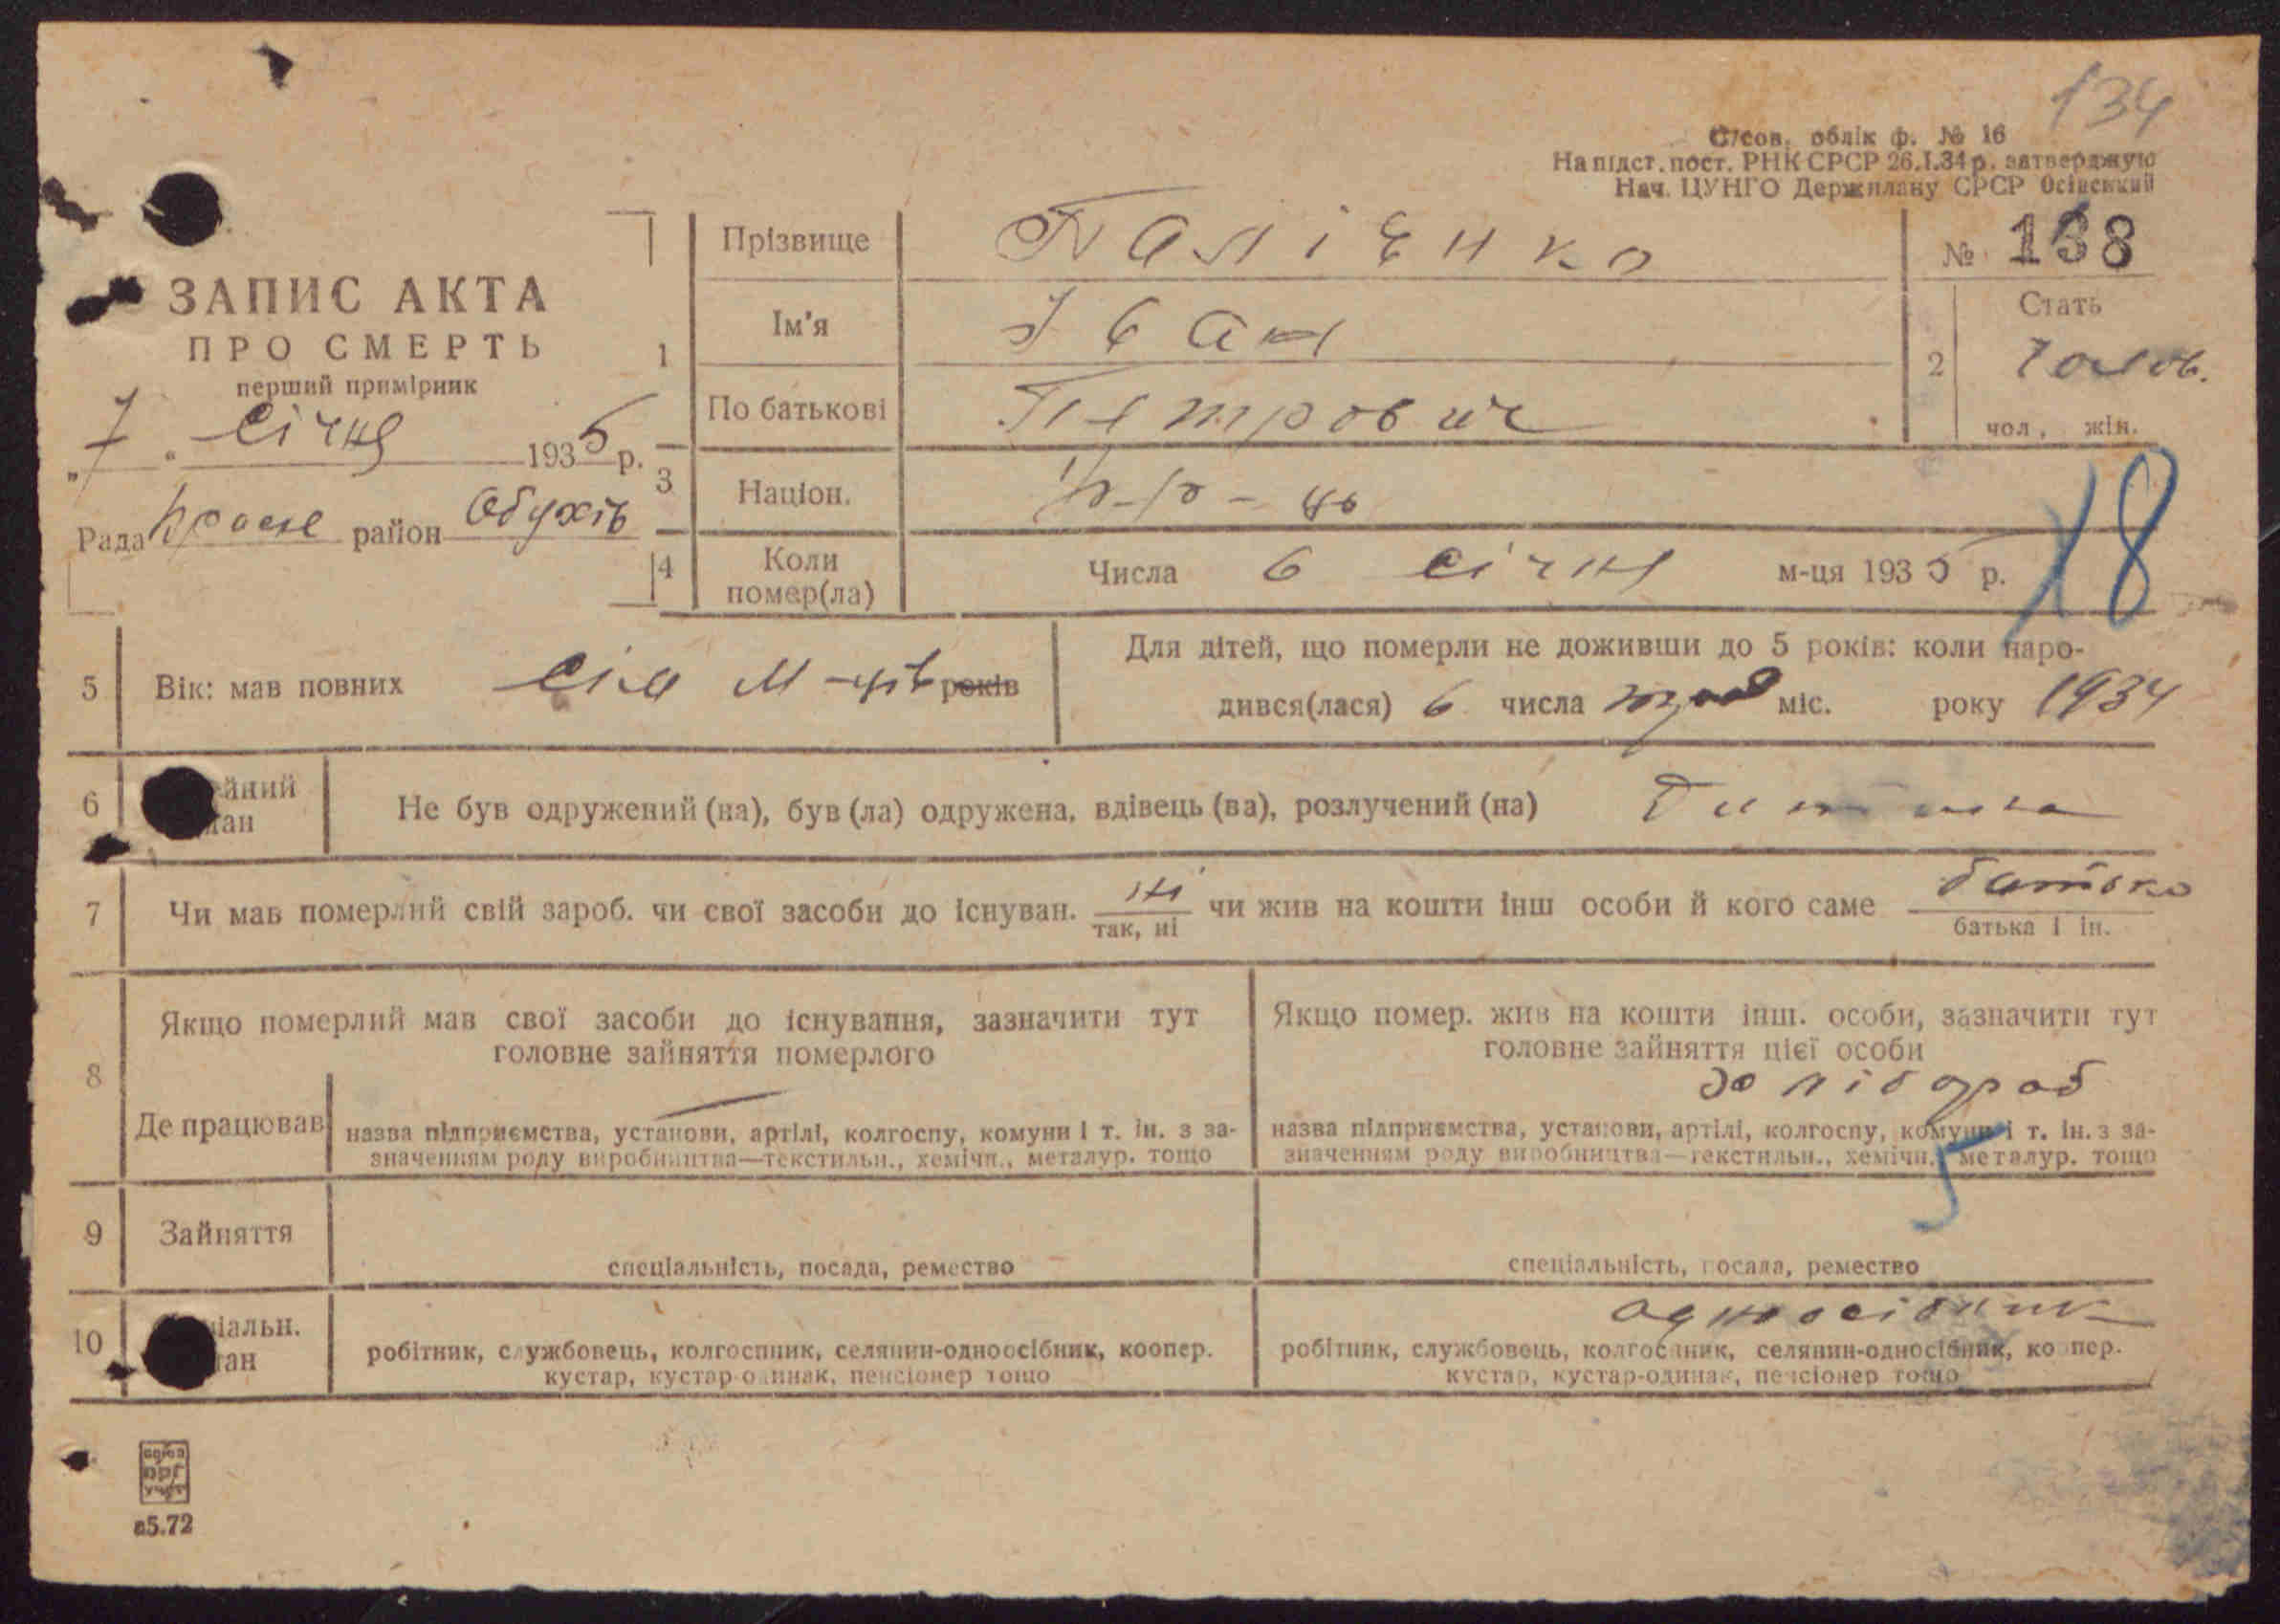 134
С/сов. облік ф. № 16
На підст. пост. РНК СРСР 26.I.34 р. затверджую
Нач. ЦУНГО Держплану СРСР Осінський
№ 138
ЗАПИС АКТА
ПРО СМЕРТЬ
перший примірник
„7“ Січня 1935 р.
Рада Красне район Обухів
1
Прізвище Палієнко
Ім'я Іван
По батькові Петрович
2
Стать
Чолов.
чол., жін.
3 Націон. Ук-р-ць
18
4 Коли помер(ла) Числа 6 січня м-ця 1935 р.
5 Вік: мав повних сім м-ців років
Для дітей, що померли не доживши до 5 років: коли наро-
дився(лася) 6 числа міс. року 1934
6 ейний
ан
Не був одружений (на), був (ла) одружена, вдівець (ва), розлучений (на) Дитина
7 Чи мав померлий свій зароб. чи свої засоби до існуван. ні чи жив на кошти інш особи й кого саме батько
так, ні
батька і ін.
8
Якщо померлий мав свої засоби до існування, зазначити тут
головне зайняття померлого
Де працював
назва підприємства, установи, артілі, колгоспу, комуни і т. ін. з за-
значенням роду виробництва—текстильн., хемічн., металур. тощо
Якщо помер. жив на кошти інш. особи, зазначити тут
головне зайняття цієї особи
хлібороб
назва підприємства, установи, артілі, колгоспу, комуни і т. ін. з за-
значенням роду виробництва—текстильн., хемічн., металур. тощо
5
9 Зайняття
спеціальність, посада, ремество
спеціальність, посада, ремество
10 іальн.
тан
робітник, службовець, колгоспник, селянин-одноосібник, коопер.
кустар, кустар-одинак, пенсіонер тощо
одноосібник
робітник, службовець, колгоспник, селянин-односібник, коопер.
кустар, кустар-одинак, пенсіонер тощо
СОЮЗ
ОРГ
УЧЕТ
в5.72